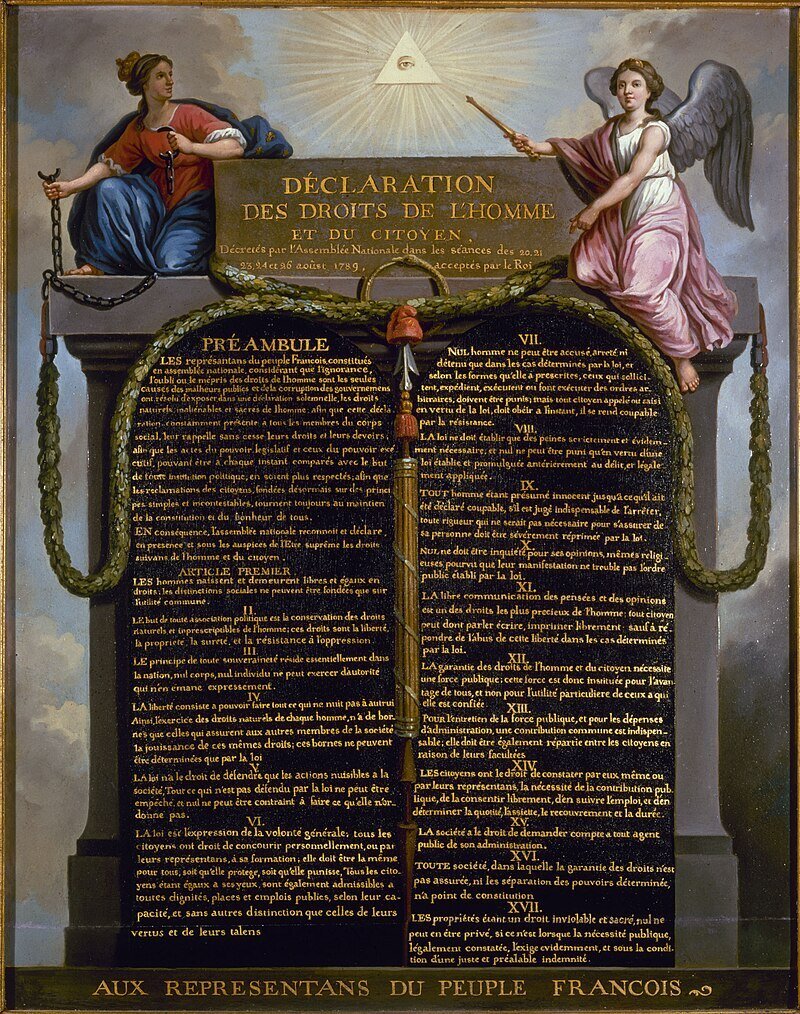 DÉCLARATION
DES DROITS DE L'HOMME
ET DU CITOYEN,
Décretés par l'Assemblée Nationale dans les séances des 20, 21
23, 24 et 26 août 1789, acceptés par le Roi
PRÉAMBULE
LES représantans du peuple Francois, constitués
en assemblée nationale, considérant que l'ignorance,
l'oubli ou le mépris des droits de l'homme sont les seules
causes des malheurs publics et de la corruption des gouvernemens
ont résolu d'exposer dans une déclaration solemnelle, les droits
naturels, inaliénables et sacrés de l'homme; afin que cette décla
ration, constamment présente a tous les membres du corps
social, leur rappelle sans cesse leurs droits et leurs devoirs;
afin que les actes du pouvoir legislatif et ceux du pouvoir exé
cutif, pouvant être a chaque instant comparés avec le but
de toute institution politique, en soient plus respectés; afin que
les reclamations des citoyens, fondées désormais sur des princi
pes simples et incontestables, tournent toujours au maintien
de la constitution et du bonheur de tous.
EN conséquence, l'assemblée nationale reconnoit et déclare
en presence et sous les auspices de l'Etre suprême les droits
suivans de l'homme et du citoyen.
ARTICLE PREMIER
LES hommes naissent et demeurent libres et égaux en
droits; les distinctions sociales ne peuvent être fondées que sur
l'utilité commune.
II.
LE but de toute association politique est la conservation des droits
naturels et inprescriptibles de l'homme; ces droits sont la liberté,
la propriete, la sureté, et la résistance à l'oppression.
III.
LE principe de toute souveraineté réside essentiellement dans
la nation, nul corps, nul individu ne peut exercer d'autorité
qui n'en émane expressement.
IV.
LA liberté consiste a pouvoir faire tout ce qui ne nuit pas à autrui
Ainsi, l'exercice des droits naturels de chaque homme, n'a de bor-
nes que celles qui assurent aux autres membres de la société
la jouissance de ces mêmes droits; ces bornes ne peuvent
être déterminées que par la loi
V.
LA loi n'a le droit de défendre que les actions nuisibles a la
société, Tout ce qui n'est pas défendu par la loi ne peut être
empêché, et nul ne peut être contraint à faire ce qu'elle n'or-
donne pas.
VI.
LA loi est l'expression de la volonté générale; tous les
citoyens ont droit de concourir personnellement, ou par
leurs représentans, à sa formation; elle doit être la même
pour tous, soit qu'elle protege, soit qu'elle punisse, Tous les cito-
yens étant égaux a ses yeux, sont également admissibles a
toutes dignités, places et emplois publics, selon leur ca-
pacité, et sans autres distinction que celles de leurs
vertus et de leurs talens
VII.
NUL homme ne peut être accusé, arreté ni
détenu que dans les cas déterminés par la loi, et
selon les formes qu'elle a prescrites, ceux qui sollici-
tent, expédient, exécutent ou font exécuter des ordres ar-
bitraires, doivent être punis; mais tout citoyen appelé ou saisi
en vertu de la loi, doit obéir a l'instant, il se rend coupable
par la résistance.
VIII.
LA loi ne doit établir que des peines strictement et évidem-
ment nécessaire, et nul ne peut être puni qu'en vertu d'une
loi établie et promulguée antérierement au délit, et légale-
ment appliquée.
IX.
TOUT homme étant présumé innocent jusqu'a ce qu'il ait
été déclaré coupable, s'il est jugé indispensable de l'arrêter,
toute rigueur qui ne serait pas nécessaire pour s'assurer de
sa personne doit être sévèrement réprimée par la loi.
X.
NUL ne doit être inquiété pour ses opinions, mêmes religi-
euses pourvu que leur manifestation ne trouble pas l'ordre
public établi par la loi.
XI.
LA libre communication des pensées et des opinions
est un des droits les plus precieux de l'homme; tout citoyen
peut dont parler écrire, imprimer librement: sauf à ré-
pondre de l'abus de cette liberté dans les cas déterminés
par la loi.
XII.
LA garantie des droits de l'homme et du citoyen nécessite
une force publique; cette force est donc instituée pour l'avan
tage de tous, et non pour l'utilité particuliere de ceux a qui
elle est confiée.
XIII.
POUR l'entretien de la force publique, et pour les dépenses
d'administration, une contribution commune est indispen-
sable; elle doit être également répartie entre les citoyens en
raison de leurs facultées
XIV.
LES citoyens ont le droit de constater par eux même ou
par leurs représentans, la nécessité de la contribution pub-
lique, de la consentir librement, d'en suivre l'emploi, et d'en
déterminer la quotité, l'assiette, le recouvrement et la durée.
XV.
LA société a le droit de demander compte a tout agent
public de son administration.
XVI.
TOUTE société, dans laquelle la garantie des droits n'est
pas assurée, ni les séparation des pouvoirs déterminée,
n'a point de constitution
XVII.
LES propriétés étant un droit inviolable et sacré, nul ne
peut en être privé, si ce n'est lorsque la nécessité publique,
légalement constatée, l'exige evidemment, et sous la condi-
tion d'une juste et préalable indemnité.
AUX REPRESENTANS DU PEUPLE FRANCOIS